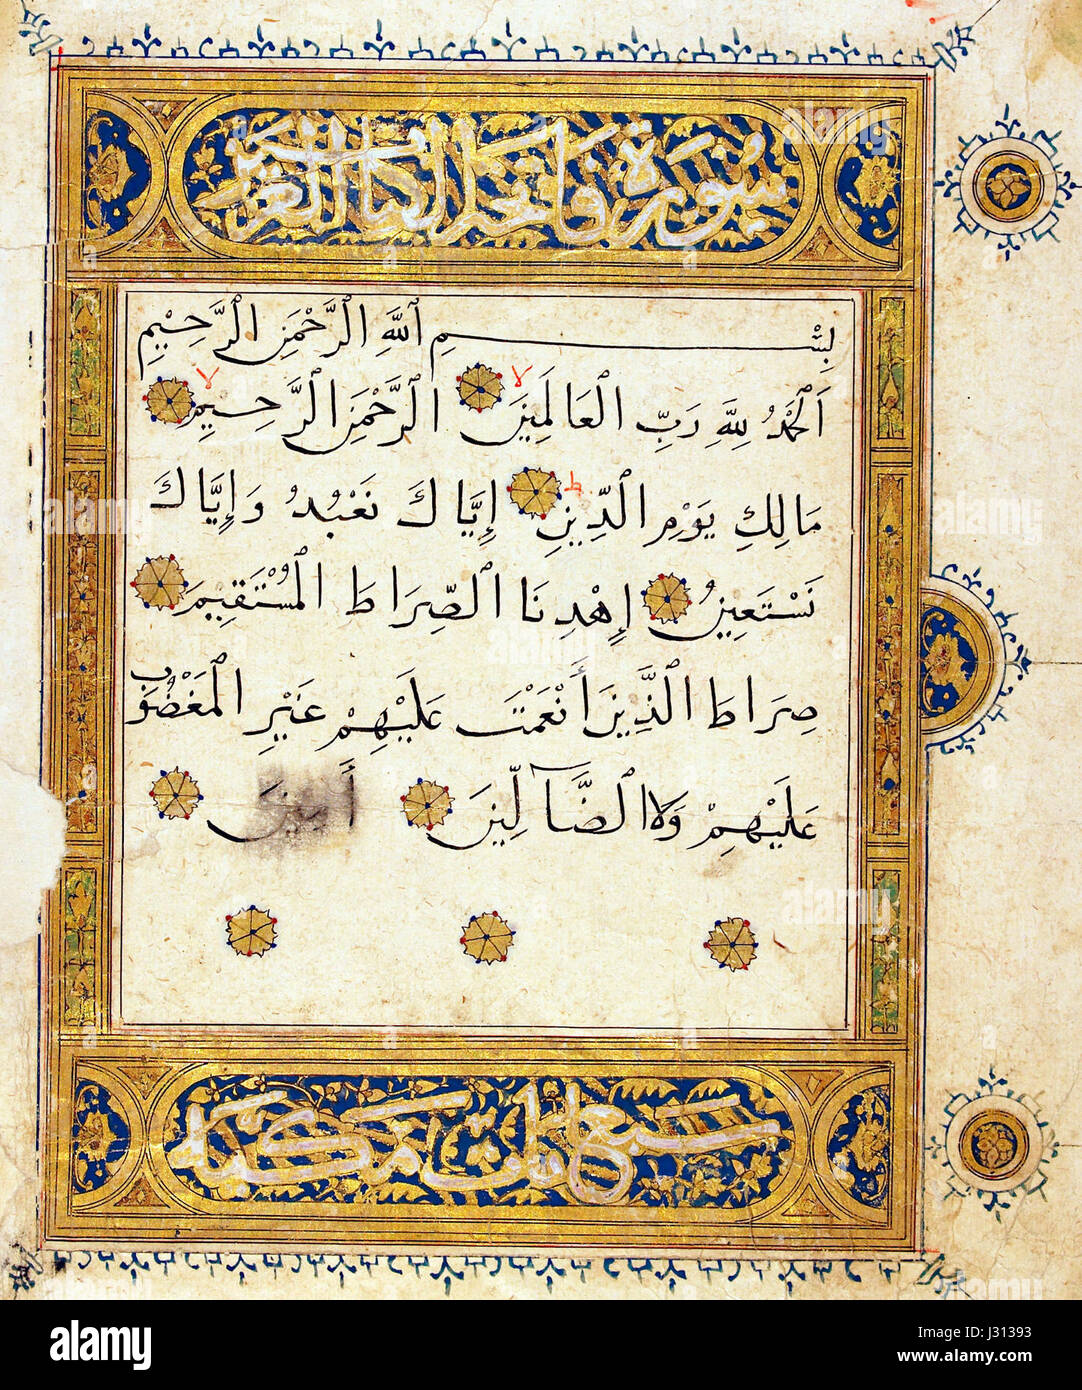 سورة فاتحة الكتاب العزيز
بِسْمِ ٱللَّهِ الرَّحْمَنِ الرَّحِيْمِ
اَلْحَمْدُ لِلَّهِ رَبِّ الْعَالَمِيْنَ لا الرَّحْمَنِ الرَّحِيْمِ لا
مَالِكِ يَوْمِ الدِّيْنِ ط إِيَّاكَ نَعْبُدُ وَإِيَّاكَ
نَسْتَعِيْنُ إِهْدِنَا الصِّرَاطَ الْمُسْتَقِيْمَ
صِرَاطَ الَّذِيْنَ أَنْعَمْتَ عَلَيْهِمْ غَيْرِ الْمَغْضُوْبِ
عَلَيْهِمْ وَلَا الضَّآلِّيْنَ أَمِيْنَ
سبع آيات مكية
alamy
Image ID: J31393
www.alamy.com